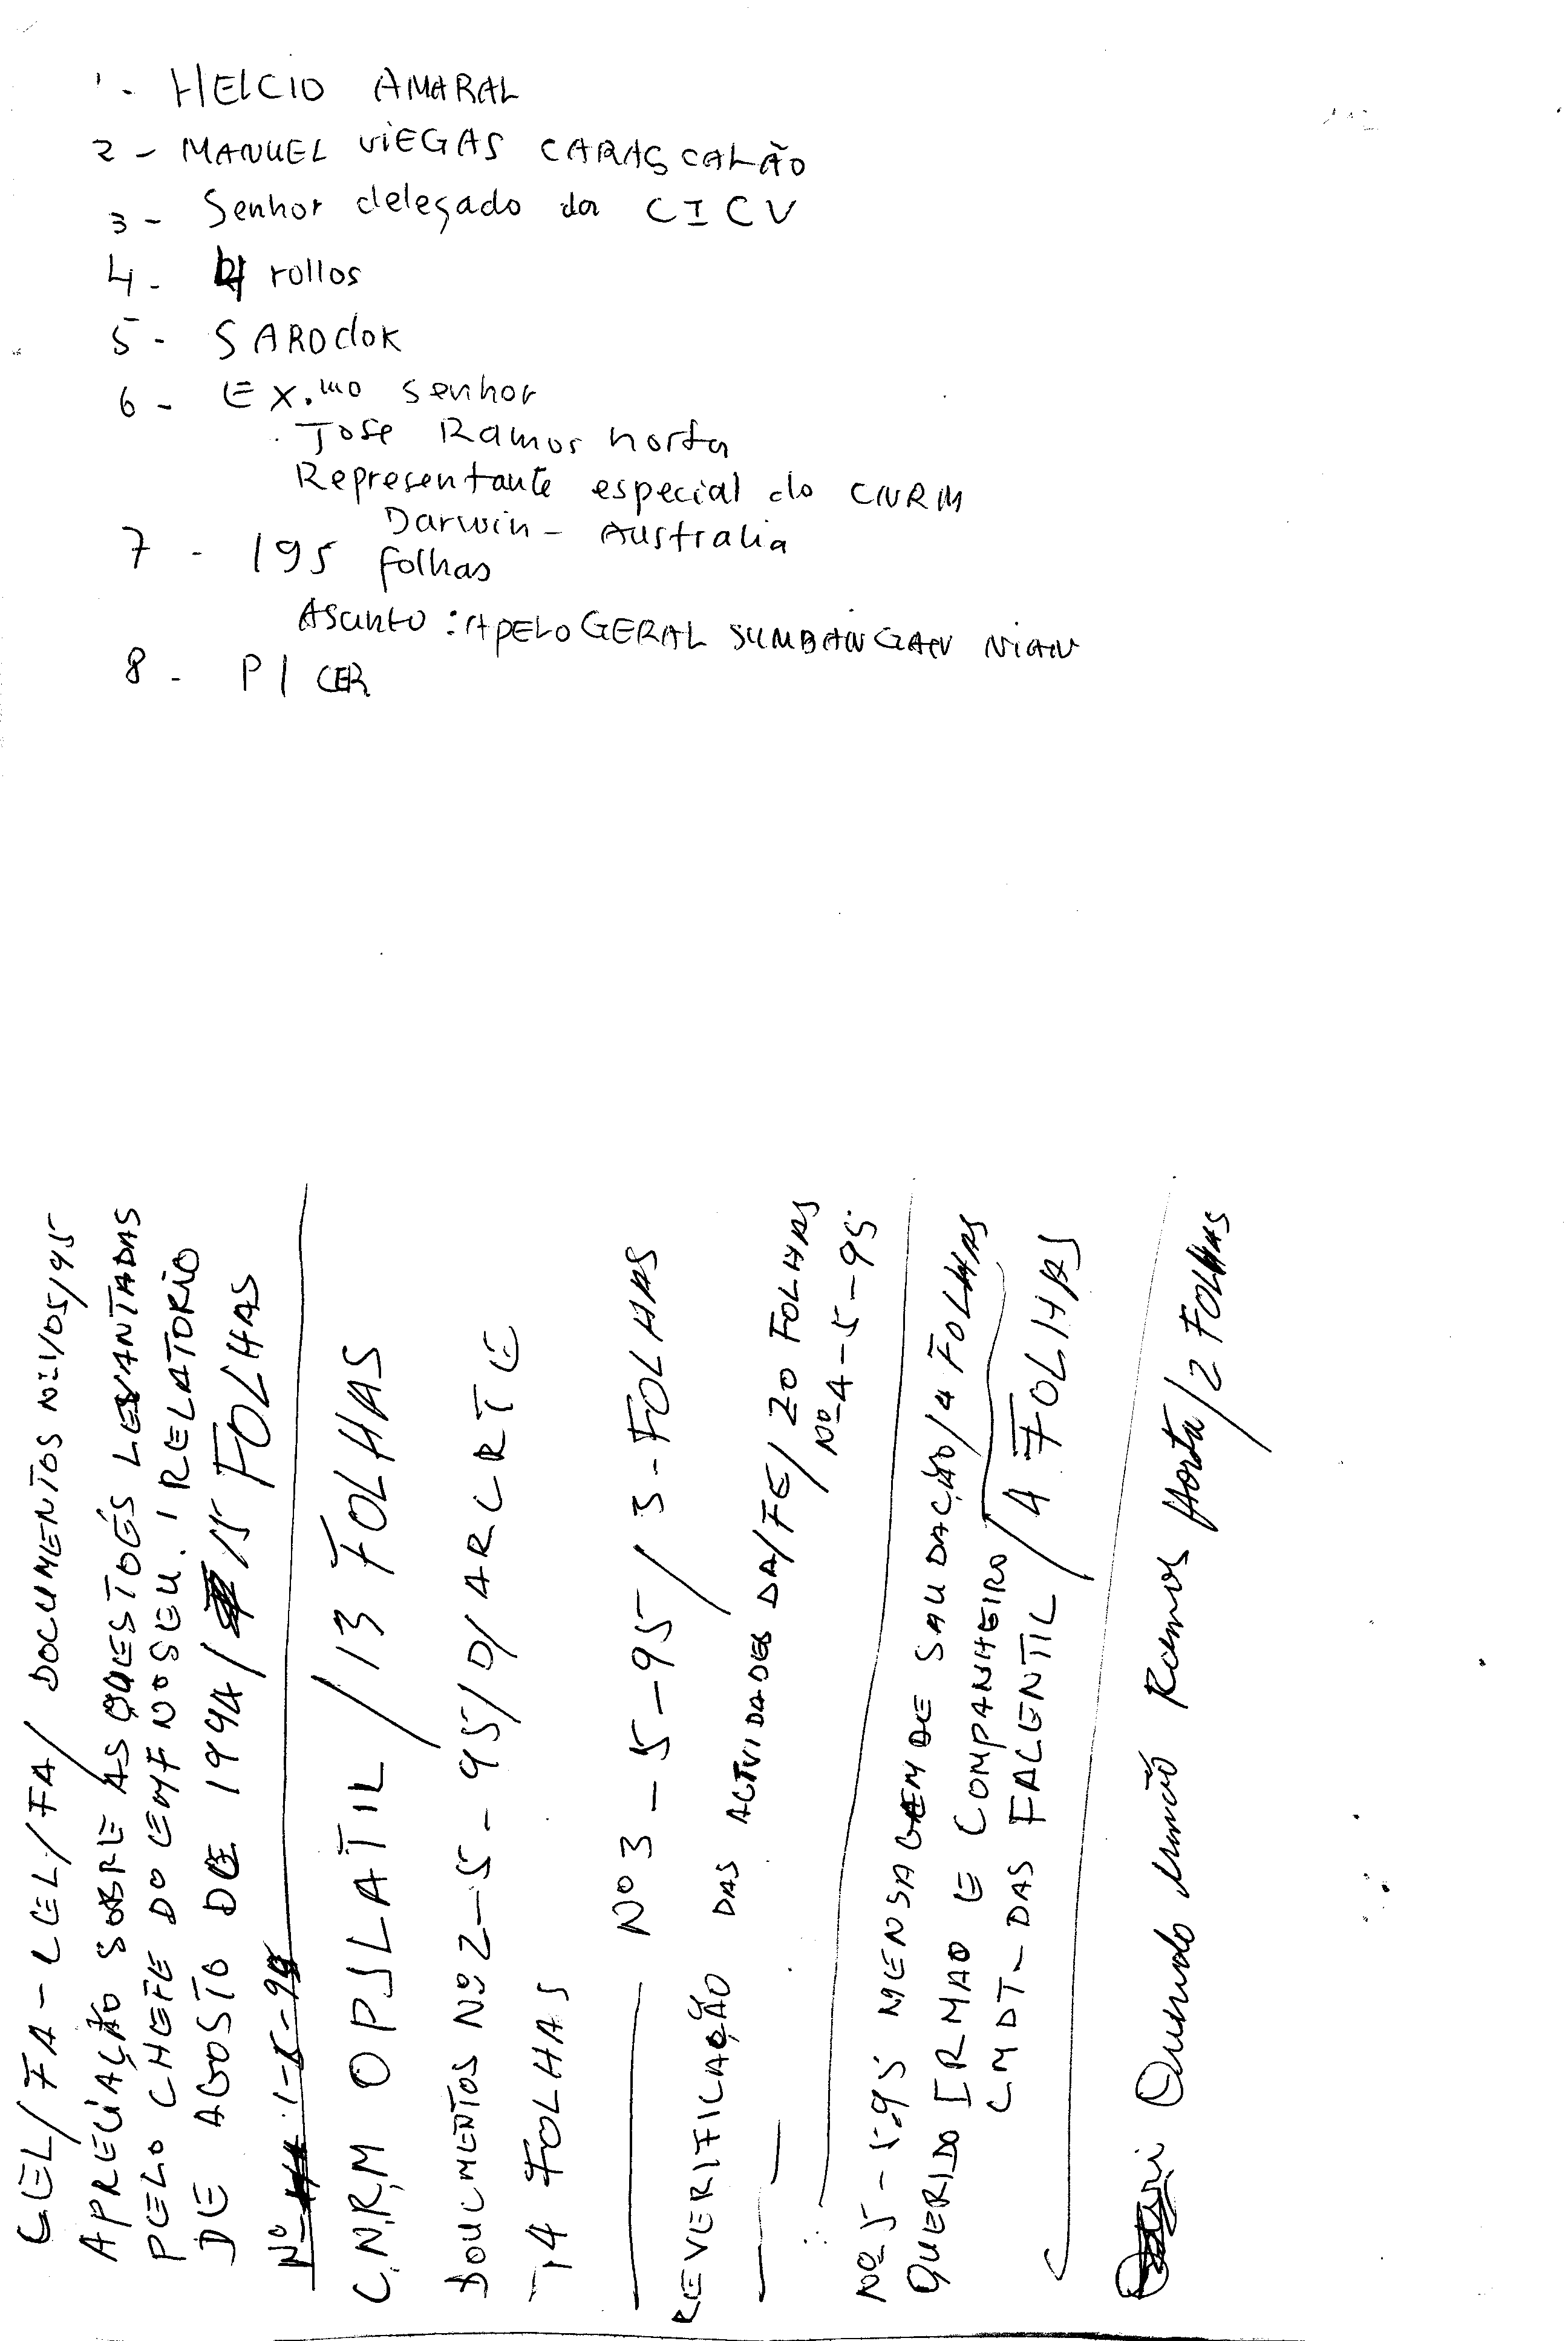 1 - HELCIO AMARAL
2 - MANUEL VIEGAS CARASCALÃO
3 - Senhor delegado da CICV
4 - 4 rollos
5 - SAROdOK
6 - EX.mo senhor
Jose Ramos horta
Representante especial do CNRM
Darwin - Australia
7 - 195 folhas
Asunto : APELO GERAL SUMBANGAN NIAN
8 - P/ CER
CEL/FA - CEL/FA/ DOCUMENTOS Nº1/05/95
APRECIAÇÃO SOBRE AS QUESTOÉS LEVANTADAS
PELO CHEFE DO EMF NO SEU 1 RELATORIO
DE AGOSTO DE 1994/ 15 FOLHAS
C.N.R.M OPSLATIL /13 FOLHAS
DOUCMENTOS Nº 2-5-95/D/ARCRTE
14 FOLHAS
Nº 3-5-95/3-FOLHAS
REVERIFICAÇÃO DAS ACTVIDADES DA/FE/20 FOLHAS
Nº 4-5-95
Nº 5-5-95 MENSAGEM DE SAUDAÇÃO/4 FOLHAS
QUERIDO IRMAO E COMPANHEIRO
CMDT-DAS FALENTIL/4 FOLHAS
Querido irmão Ramos Horta/2 FOLHAS